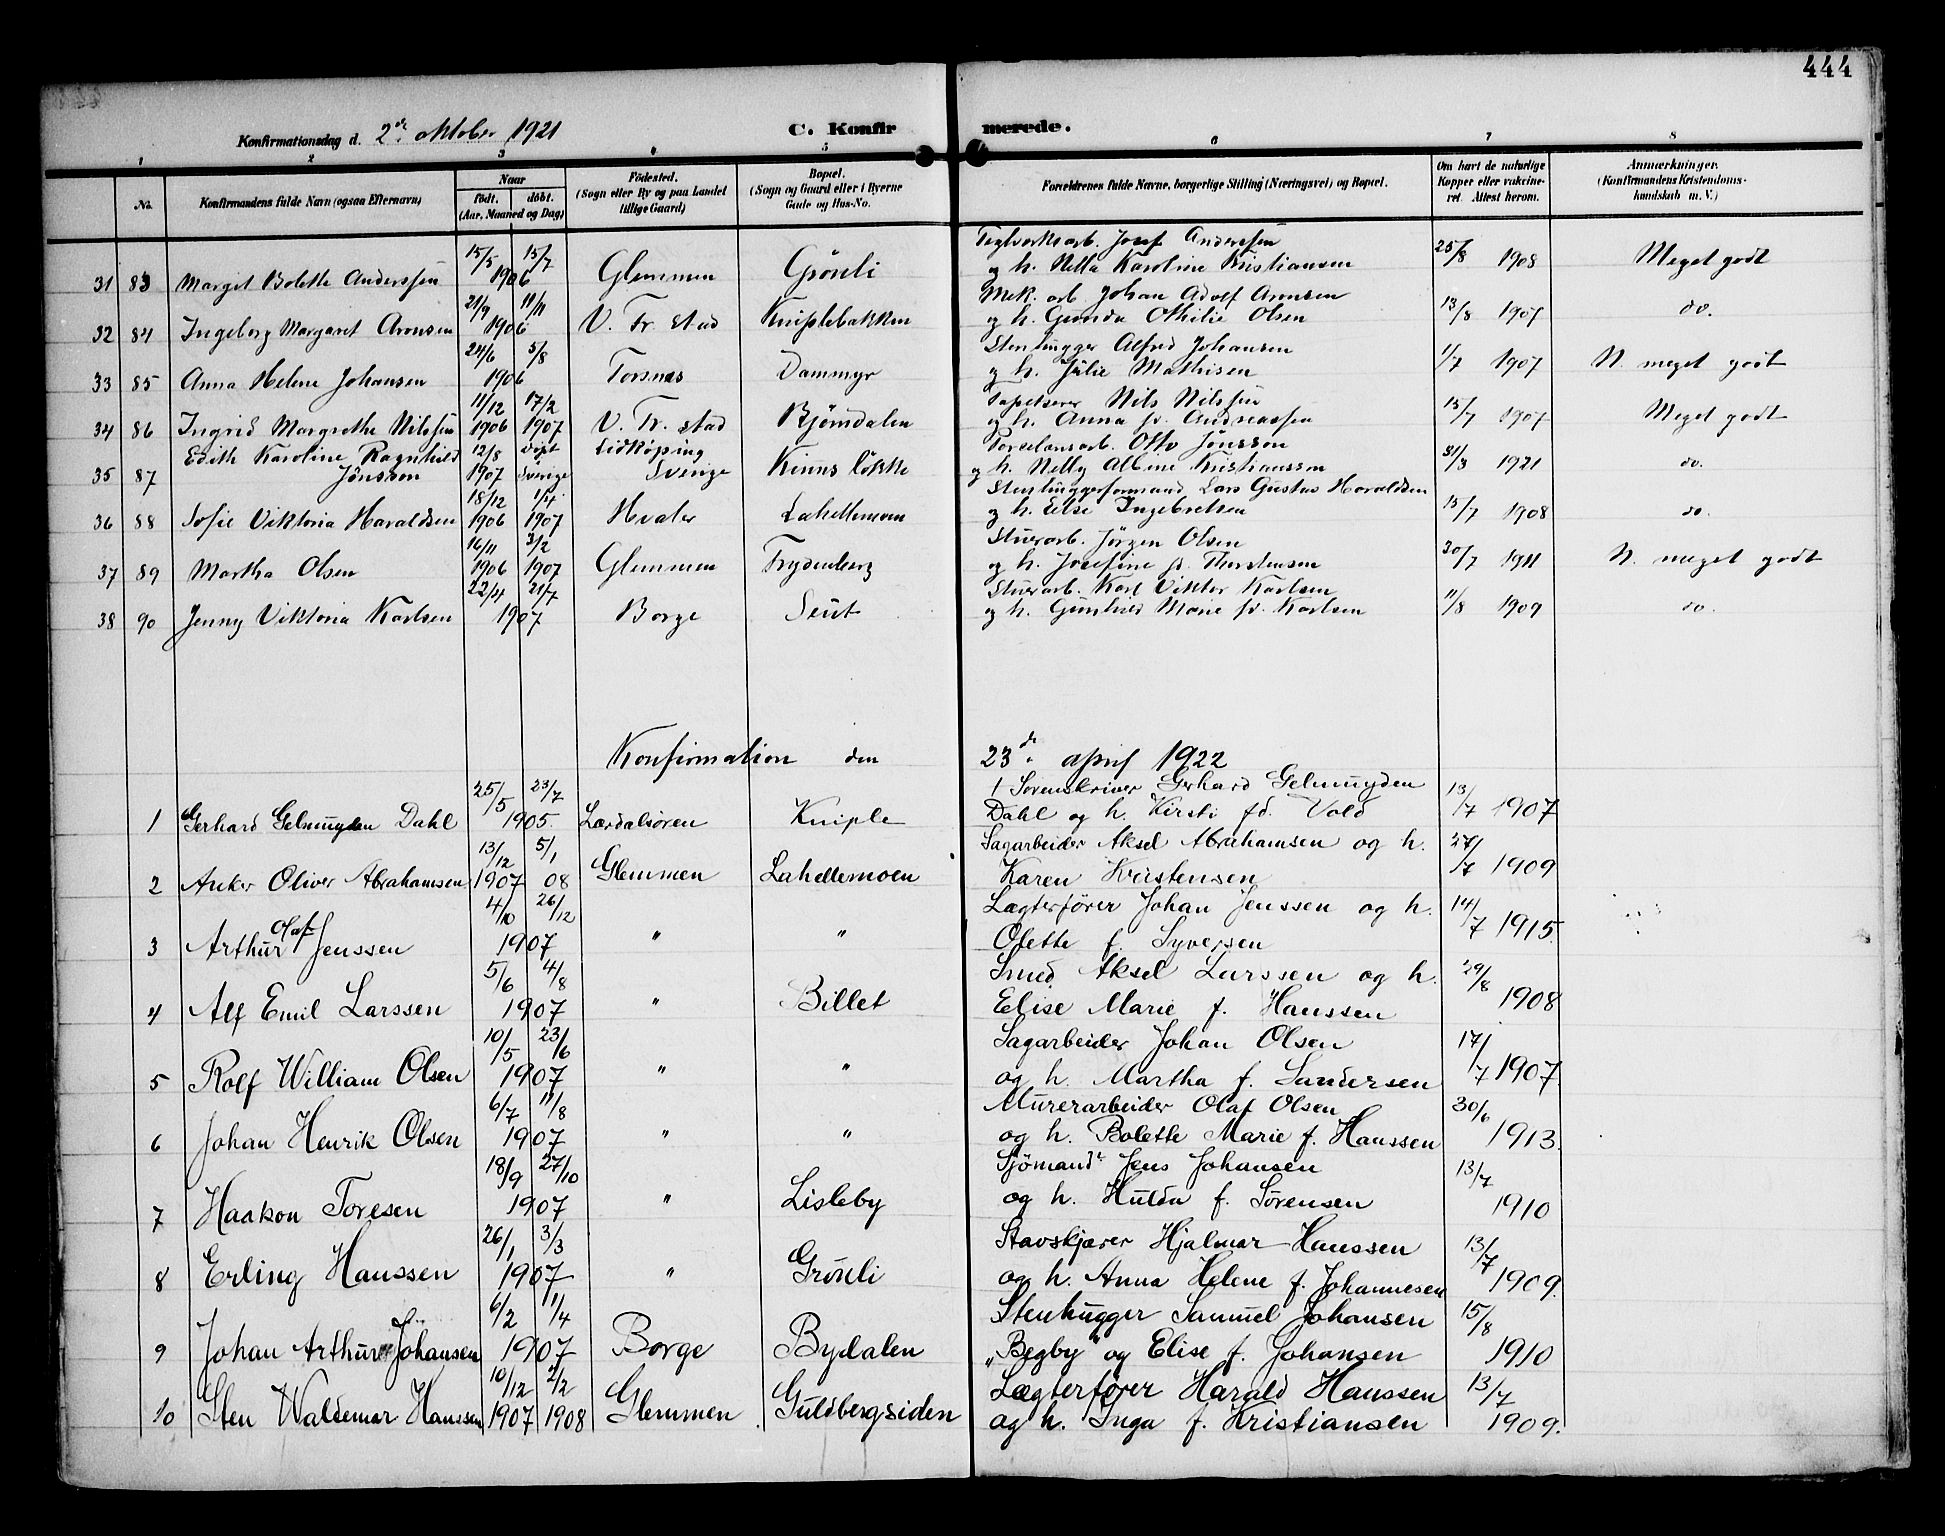 444
Konfirmationsdag d. 2den oktober 1921 C. Konfirmerede.
1 2 3 4 5 6 7 8
No. Konfirmandens fulde Navn (ogsaa Efternavn) Naar født. døbt. (Aar, Maaned og Dag) Fødested. (Sogn eller By og paa Landet tillige Gaard) Bopæl. (Sogn og Gaard eller i Byerne Gade og Hus-No. Forældrenes fulde Navne, borgerlige Stilling (Næringsvei) og Bopæl. Om havt de naturlige Kopper eller vaccineret. Attest herom. Anmærkninger. (Konfirmandens Kristendomskundskab m. V.)
15/5 15/7 Teglverksarb. Josef Anderssen
31 83 Margit Bolette Anderssen 1906 Glemmen Grönli og h. Netta Karoline Kristiansen 25/8 1908 Meget godt
21/9 11/11 Mek. arb Johan Adolf Aronsen
32 84 Ingeborg Margaret Aronsen 1906 V. Fr. stad Kniplebakken og h. Gunda Othilie Olsen 13/8 1907 do.
24/6 5/8 Stenhugger Alfred Johansen
33 85 Anna Helene Johansen 1906 Torsnes Dammyr og h. Julie Mathisen 1/7 1907 N. meget godt
11/12 17/2 Tapetserer Nils Nilssen
34 86 Ingrid Margrethe Nilssen 1906 1907 V. Fr. stad Bjørndalen og h. Anna f. Andreassen 15/7 1907 Meget godt
Edith Karoline Ragnhild 12/8 döpt Lidköping Porcelansarb. Otto Jönsson
35 87 Jönsson 1907 Sverige Sverige Kinns lökke og h. Nelly Albine Kristiansson 31/3 1921 do.
18/12 1/4 Stenhuggerformand Lars Gustav Haraldsen
36 88 Sofie Viktoria Haraldsen 1906 1907 Hvaler Lahellemoen og h. Else Ingebretsen 15/7 1908 do.
16/11 3/2 Stuerarb. Jörgen Olsen
37 89 Martha Olsen 1906 1907 Glemmen Frydenberg og h. Josefine f. Thorstensen 30/7 1911 N. meget godt
22/4 21/7 Stuerarb. Karl Viktor Karlsen
38 90 Jenny Viktoria Karlsen 1907 Borge Seut og h. Gunhild Marie f. Karlsen 11/8 1909 do.
Konfirmation den 23de april 1922
25/5 23/7 † Sorenskriver Gerhard Gelmuyden 13/7
1 Gerhard Gelmuyden Dahl 1905. Lærdalsören Kniple Dahl og h. Kirsti fd. Vold 1907
13/12 5/1 Sagarbeider Aksel Abrahamsen og h. 27/7
2 Anker Oliver Abrahamsen 1907 08 Glemmen Lahellemoen Karen Kristensen 1909
4/10 26/12 Lægterfører Johan Jenssen og h. 14/7
3 Arthur Olaf Jenssen 1907 " " Olette f. Syversen 1915.
5/6 4/8 Smed Aksel Larssen og h. 29/8
4 Alf Emil Larssen 1907 " Billet Elise Marie f. Hanssen 1908
10/5 23/6 Sagarbeider Johan Olsen 17/7
5 Rolf William Olsen 1907 " " og h. Martha f. Sandersen 1907
6/7 11/8 Murerarbeider Olaf Olsen 30/6
6 Johan Henrik Olsen 1907 " " og h. Bolette Marie f. Hanssen 1913.
18/9 27/10 Sjömand Jens Johansen 13/7
7 Haakon Toresen 1907 " Lisleby og h. Hulda f. Sørensen 1910
26/1 3/3 Stavskjærer Hjalmar Hanssen 13/7
8 Erling Hanssen 1907 " Grönli og h. Anna Helene f. Johannesen 1909.
6/2 11/4 Stenhugger Samuel Johansen 15/8
9 Johan Arthur Johansen 1907 Borge Bydalen „Begby" og Elise f. Johansen 1910
10/12 2/2 Lægterfører Harald Hanssen 13/7
10 Sten Waldemar Hanssen 1907 1908 Glemmen Guldbergsiden og h. Inga f. Kristiansen 1909.